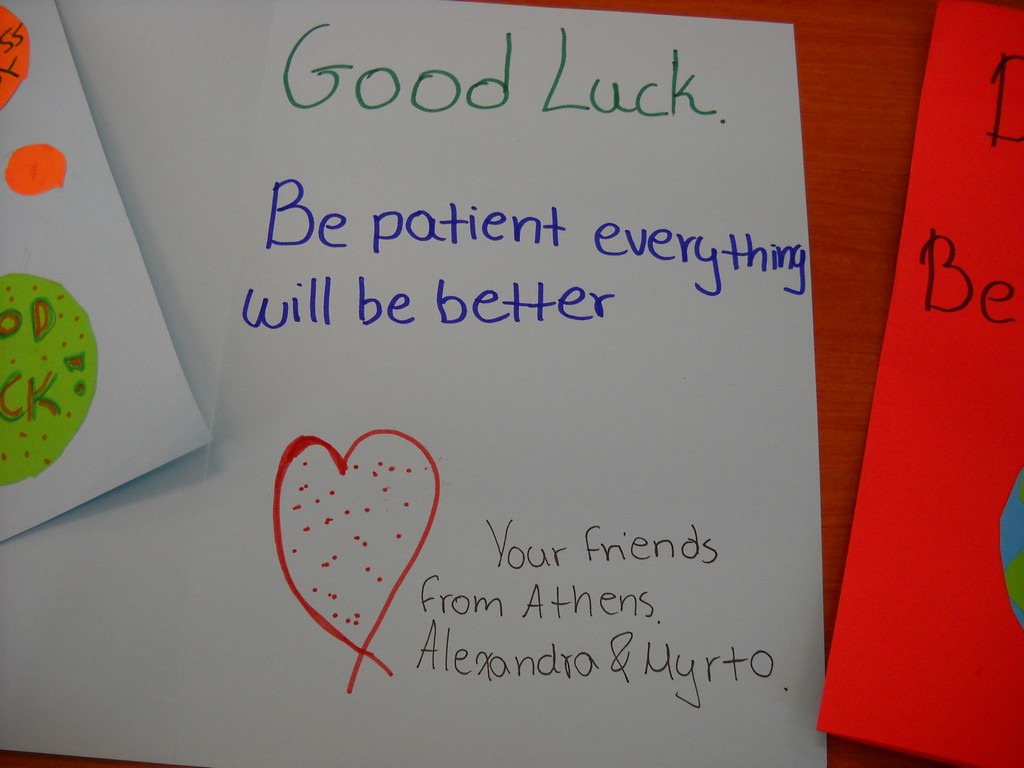 Good Luck.
Be patient everything
will be better
Your friends
from Athens.
Alexandra & Myrto.
OD
CK!
SS
Be